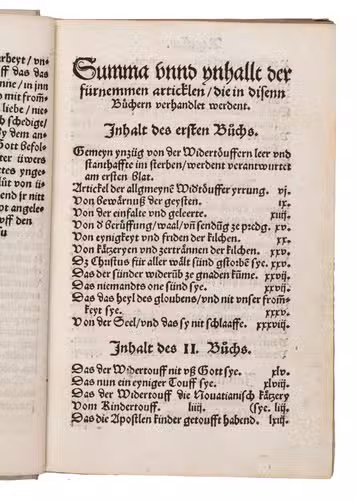 rheyt / vn-
ff das das
nne / in jnn
mit from̃-
liebe / nie-
schedige /
y dem an-
Gott befol-
ter üwers
ttes ynge-
lüt von ü-
end jr nit
pt angele-
vff den
u
Summa vnnd ynhallt der
fürnemmen articklen / die in disenn
Büchern verhandlet werdent.
Inhalt des ersten Büchs.
Gemeyn ynzüg von der Widertöuffern leer vnd
standhaffte im sterben / werdent verantwurtet
am ersten blat.
Artickel der allgmeynẽ Widtöuffer yrrung. vj.
Von bewårnuß der geysten. ix.
Von der einfalte vnd geleerte. xiiij.
Von d berüffung / waal / vñ sendũg ze predg. xv.
Von eynigkeyt vnd friden der kilchen. xx.
Von kåtzeryen vnd zertrånnen der kilchen. xxv.
Dz Christus für aller wålt sünd gstorbẽ sye. xxv.
Das der sünder widerũb ze gnaden kũme. xxvij.
Das niemandts one sünd sye. xxxij.
Das das heyl des gloubens / vnd nit vnser from̃-
keyt sye. xxxv.
Von der Seel / vnd das sy nit schlaaffe. xxxviij.
Inhalt des II. Büchs.
Das der Widertouff nit vß Gott sye. xlv.
Das nun ein eyniger Touff sye. xlviij.
Das der Widertouff die Nouatianisch kåtzery
Vom Kindertouff. liiij. (sye. lij.
Das die Apostlen kinder getoufft habend. lxiij.